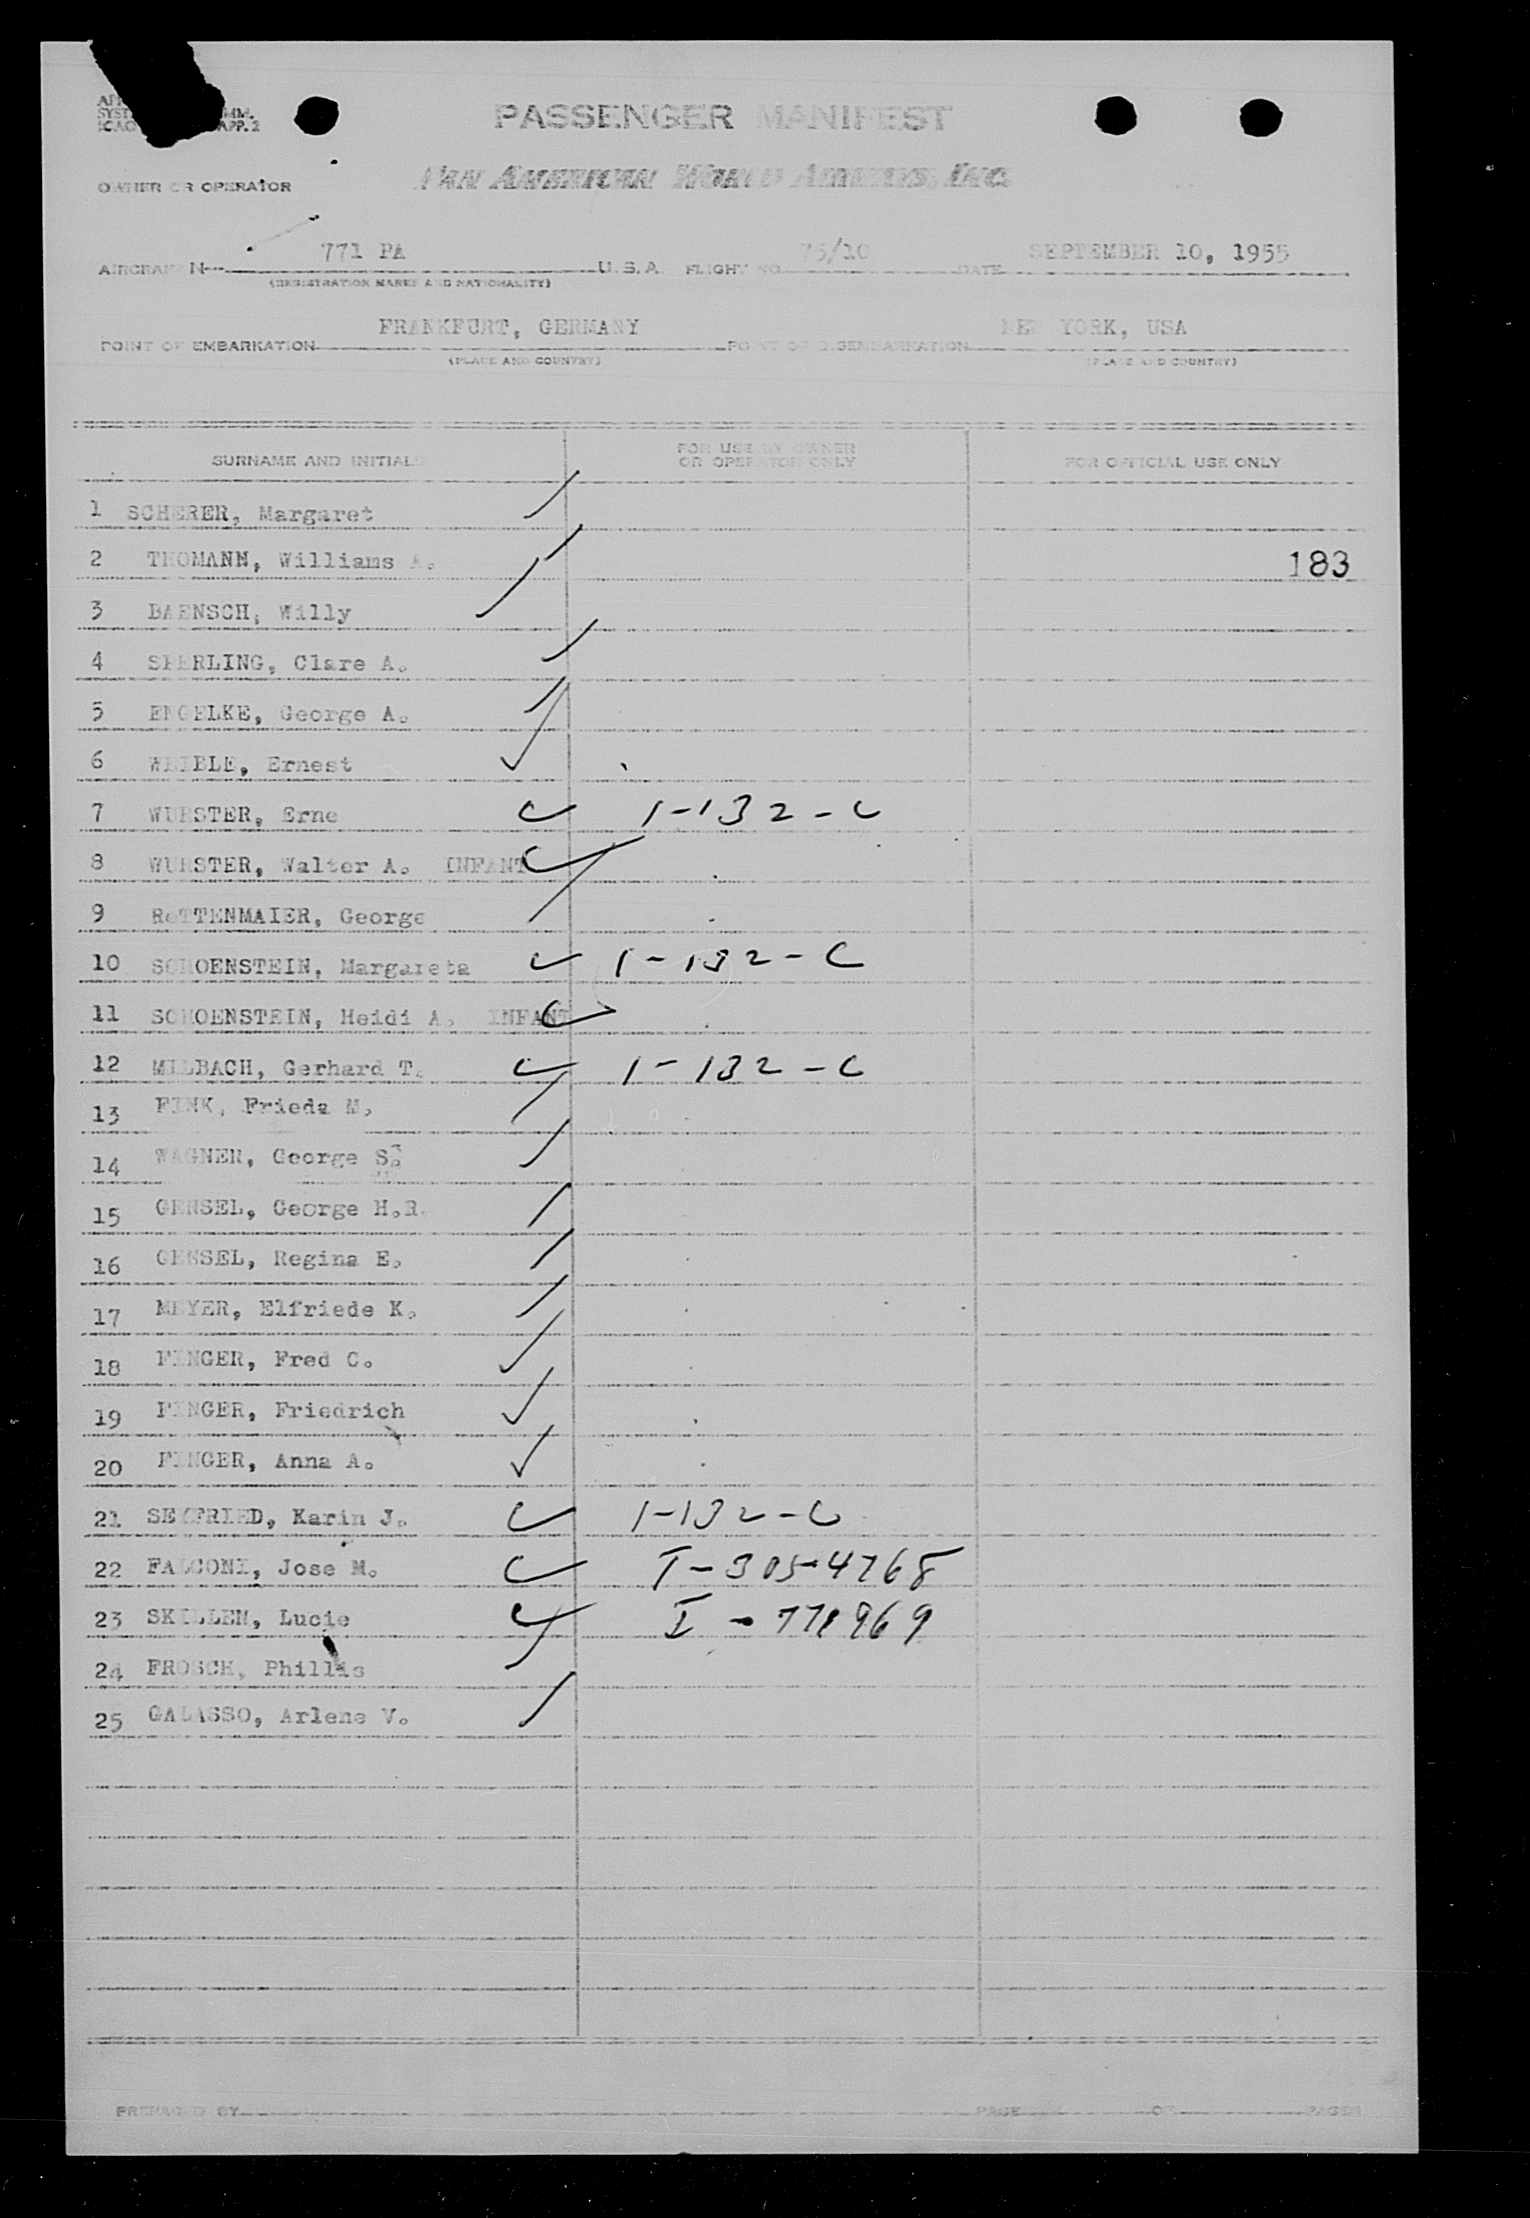 PASSENGER MANIFEST
APP. 2
OWNER OR OPERATOR PAN AMERICAN WORLD AIRWAYS, INC.
AIRCRAFT N 771 PA U. S. A. FLIGHT NO. 75/10 DATE SEPTEMBER 10, 1955
(REGISTRATION MARKS AND NATIONALITY)
POINT OF EMBARKATION FRANKFURT, GERMANY POINT OF DISEMBARKATION NEW YORK, USA
(PLACE AND COUNTRY) (PLACE AND COUNTRY)
SURNAME AND INITIALS FOR USE BY OWNER OR OPERATOR ONLY FOR OFFICIAL USE ONLY
1 SCHERER, Margaret
2 THOMANN, Williams A. 183
3 BAENSCH, Willy
4 SPERLING, Clare A.
5 ENGELKE, George A.
6 WEIBLE, Ernest
7 WURSTER, Erne 1-132-C
8 WURSTER, Walter A. INFANT
9 ROTTENMAIER, George
10 SCHOENSTEIN, Margareta 1-132-C
11 SCHOENSTEIN, Heidi A. INFANT
12 MILBACH, Gerhard T. 1-132-C
13 FINK, Frieda M.
14 WAGNER, George S.
15 GENSEL, George H.R.
16 GENSEL, Regina E.
17 MEYER, Elfriede K.
18 FINGER, Fred C.
19 FINGER, Friedrich
20 FINGER, Anna A.
21 SEGFRIED, Karin J. 1-132-C
22 FALCONI, Jose M. I-305-4768
23 SKILLEN, Lucie I-778969
24 FROSCH, Phillis
25 GALASSO, Arlene V.
PREPARED BY PAGE OF PAGES